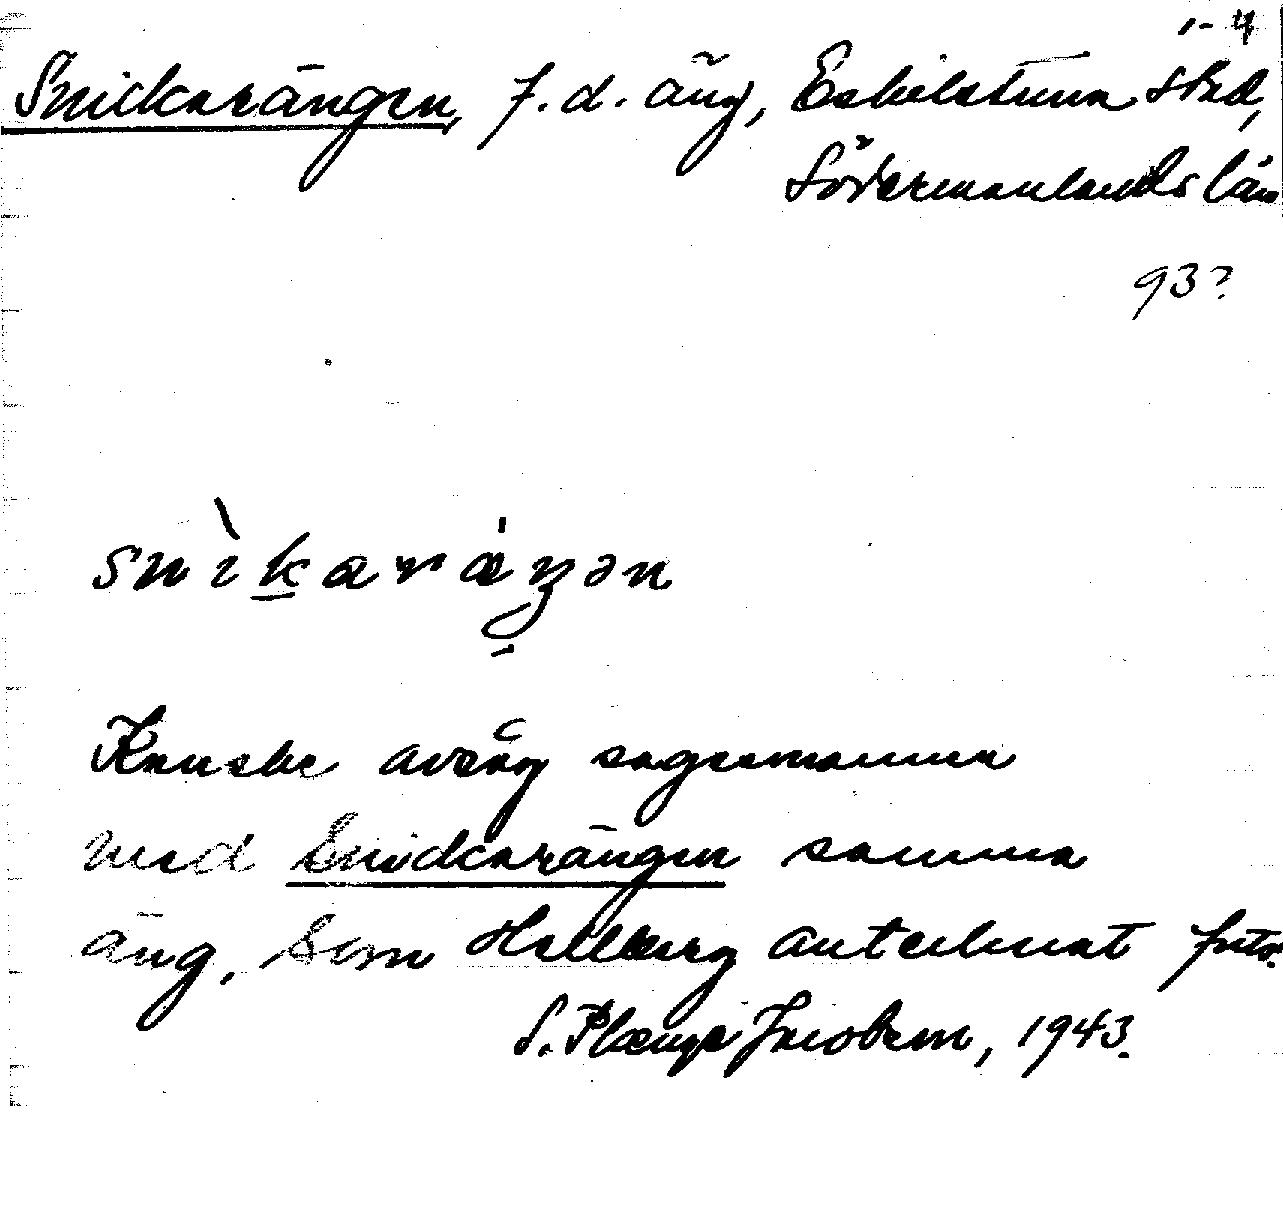 1-4
Snickarängen, f.d. äng, Eskilstuna stad,
Södermanlands län
93?
snìkaráŋən
Kanske avsåg sagesmannen
med Snickarängen samma
äng, som Hellberg antecknat
S. Plænge Jacobson, 1943.